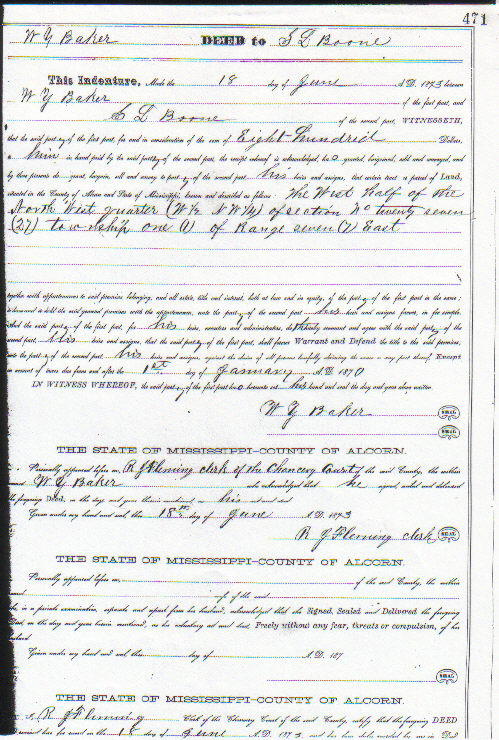 471
W Y Baker DEED to S L Boone
This Indenture, Made the 18 day of June A.D. 1873 between
W Y Baker of the first part, and
S L Boone of the second part, WITNESSETH,
that the said party of the first part, for and in consideration of the sum of Eight Hundred Dollars,
to him in hand paid by the said party of the second part, the receipt whereof is acknowledged, has granted, bargained, sold and conveyed, and
by these presents do grant, bargain, sell and convey to party of the second part his heirs and assigns, that certain tract or parcel of Land,
situated in the County of Alcorn and State of Mississippi, known and described as follows: The West Half of the
North West quarter (W ½ N W ¼) of section No twenty seven
(27) township one (1) of Range seven (7) East
together with appurtenances to said premises belonging, and all estate, title and interest, both at law and in equity, of the party of the first part in the same;
to have and to hold the said premises with the appurtenances, unto the party of the second part his heirs and assigns forever, in fee simple.
And the said party of the first part, for his heirs, executors and administrators, do hereby covenant and agree with the said party of the
second part, his heirs and assigns, that the said party of the first part, shall forever Warrant and Defend the title to the said premises,
unto the party of the second part his heirs and assigns, against the claims of all persons lawfully claiming the same or any part thereof, Except
on account of taxes due from and after the 1st day of January A.D. 1870
IN WITNESS WHEREOF, the said party of the first part hereunto set his hand and seal the day and year above written
W Y Baker SEAL
SEAL
THE STATE OF MISSISSIPPI-COUNTY OF ALCORN.
Personally appeared before me, R J Fleming clerk of the Chancery Court of the said County, the within
named W Y Baker who acknowledged that he signed, sealed and delivered
the foregoing Deed, on the day and year therein mentioned, as his act and deed
Given under my hand and seal, this 18th day of June A.D. 1873
R J Fleming clerk SEAL
THE STATE OF MISSISSIPPI-COUNTY OF ALCORN.
Personally appeared before me, of the said County, the within
named wife of the said
who in a private examination, separate and apart from her husband, acknowledged that she Signed, Sealed and Delivered the foregoing
Deed on the day and year therein mentioned, as her voluntary act and deed, Freely without any fear, threats or compulsion, of her
husband
Given under my hand and seal, this day of A.D. 187
SEAL
THE STATE OF MISSISSIPPI-COUNTY OF ALCORN.
I, R J Fleming Clerk of the Chancery Court of the said County, certify that the foregoing DEED
18 day of June A.D. 1873 and has been duly recorded by me in Deed